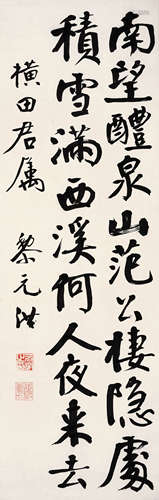 南望醴泉山范公棲隱處
積雪滿西溪何人夜来去
横田君属
黎元洪